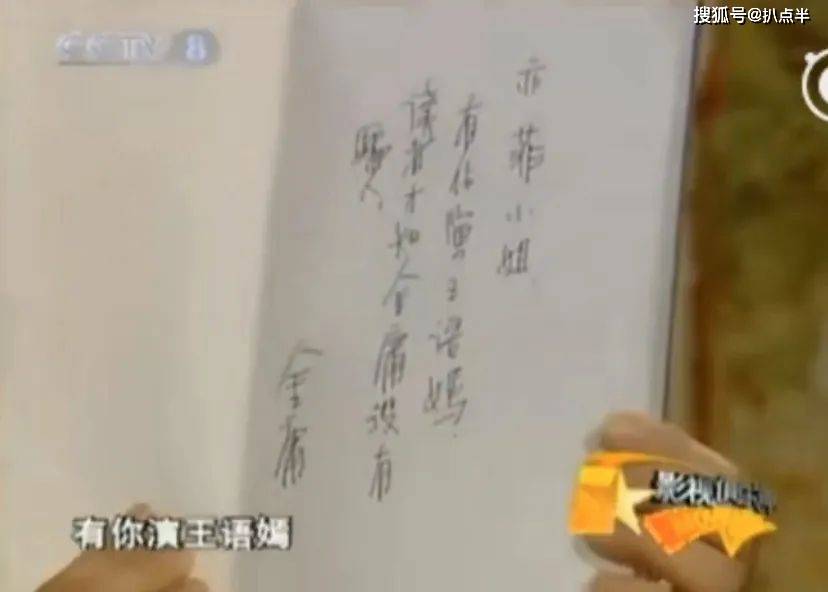 搜狐号@扒点半
CCTV 8
亦菲小姐
有你演王语嫣,
读者才知金庸没有
骗人
金庸
影视俱乐部
有你演王语嫣